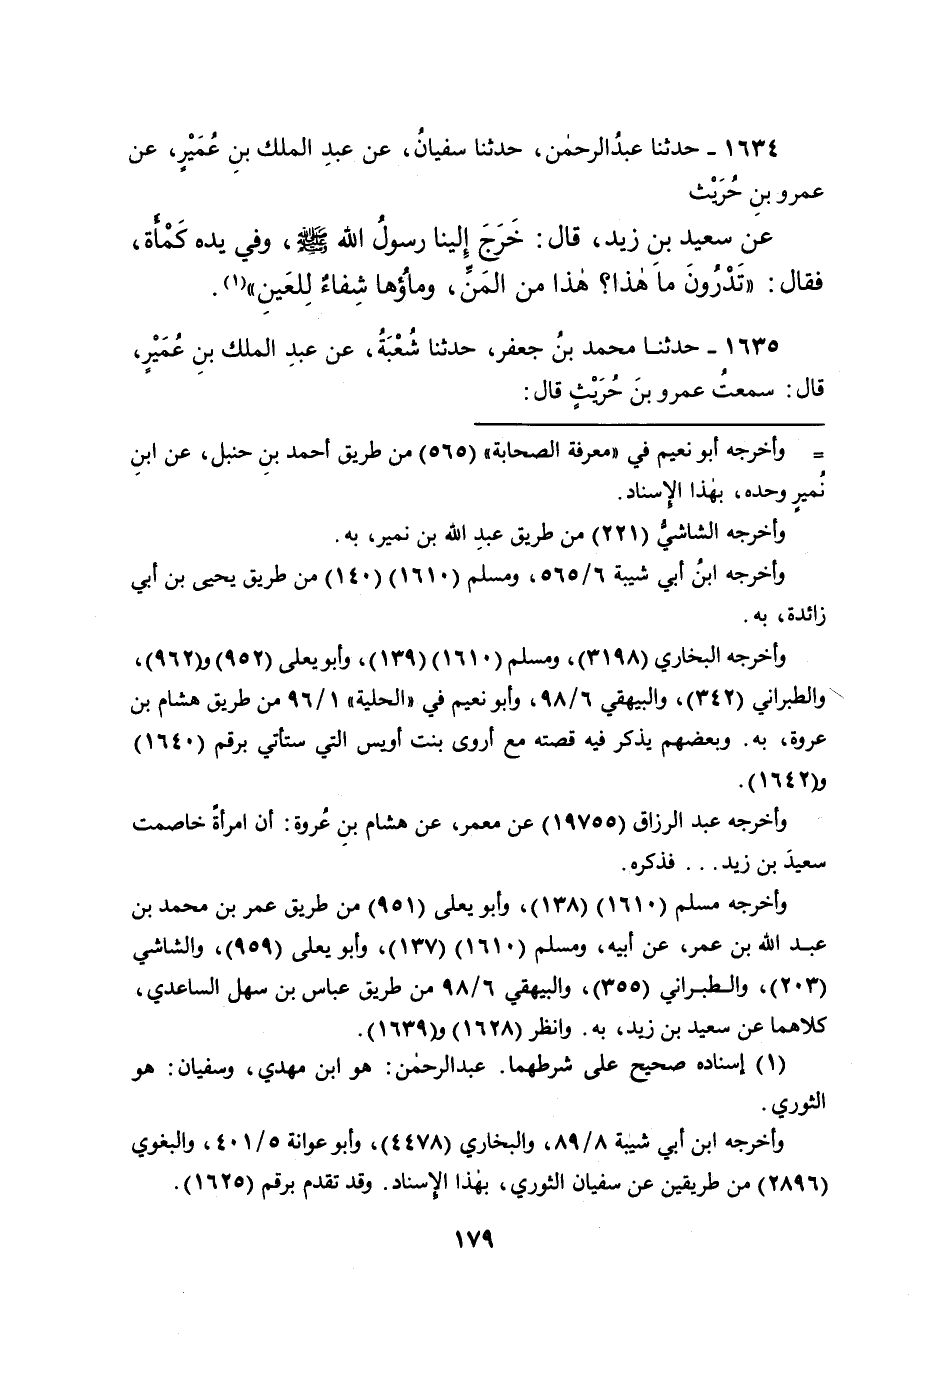 ١٦٣٤ ـ حدثنا عبدُالرحمٰن، حدثنا سفيانُ، عن عبدِ الملك بنِ عُمَيْرٍ، عن
عمرو بنِ حُرَيْث
عن سعيد بن زيد، قال: خَرَجَ إلينا رسولُ الله ﷺ، وفي يده كَمْأَة،
فقال: «تَدْرُونَ ما هٰذا؟ هٰذا من المَنِّ، وماؤُها شِفاءٌ لِلعَينِ»(١).
١٦٣٥ ـ حدثنا محمد بنُ جعفر، حدثنا شُعْبَةُ، عن عبدِ الملك بنِ عُمَيْرٍ،
قال: سمعتُ عمرو بنَ حُرَيْثٍ قال:
= وأخرجه أبو نعيم في «معرفة الصحابة» (٥٦٥) من طريق أحمد بنِ حنبل، عن ابنِ
نُميرٍ وحده، بهٰذا الإِسناد.
وأخرجه الشاشيُّ (٢٢١) من طريق عبدِ الله بن نمير، به.
وأخرجه ابنُ أبي شيبة ٥٦٥/٦، ومسلم (١٦١٠) (١٤٠) من طريق يحيى بن أبي
زائدة، به.
وأخرجه البخاري (٣١٩٨)، ومسلم (١٦١٠) (١٣٩)، وأبو يعلى (٩٥٢) و(٩٦٢)،
والطبراني (٣٤٢)، والبيهقي ٩٨/٦، وأبو نعيم في «الحلية» ٩٦/١ من طريق هشام بن
عروة، به. وبعضهم يذكر فيه قصته مع أروى بنت أويس التي ستأتي برقم (١٦٤٠)
و(١٦٤٢).
وأخرجه عبد الرزاق (١٩٧٥٥) عن معمر، عن هشام بنِ عُروة: أن امرأةً خاصمت
سعيدَ بن زيد... فذكره.
وأخرجه مسلم (١٦١٠) (١٣٨)، وأبو يعلى (٩٥١) من طريق عمر بن محمد بن
عبد الله بن عمر، عن أبيه، ومسلم (١٦١٠) (١٣٧)، وأبو يعلى (٩٥٩)، والشاشي
(٢٠٣)، والطبراني (٣٥٥)، والبيهقي ٩٨/٦ من طريق عباس بن سهل الساعدي،
كلاهما عن سعيد بن زيد، به. وانظر (١٦٢٨) و(١٦٣٩).
(١) إسناده صحيح على شرطهما. عبدالرحمٰن: هو ابن مهدي، وسفيان: هو
الثوري.
وأخرجه ابن أبي شيبة ٨٩/٨، والبخاري (٤٤٧٨)، وأبو عوانة ٤٠١/٥، والبغوي
(٢٨٩٦) من طريقين عن سفيان الثوري، بهٰذا الإِسناد. وقد تقدم برقم (١٦٢٥).
١٧٩